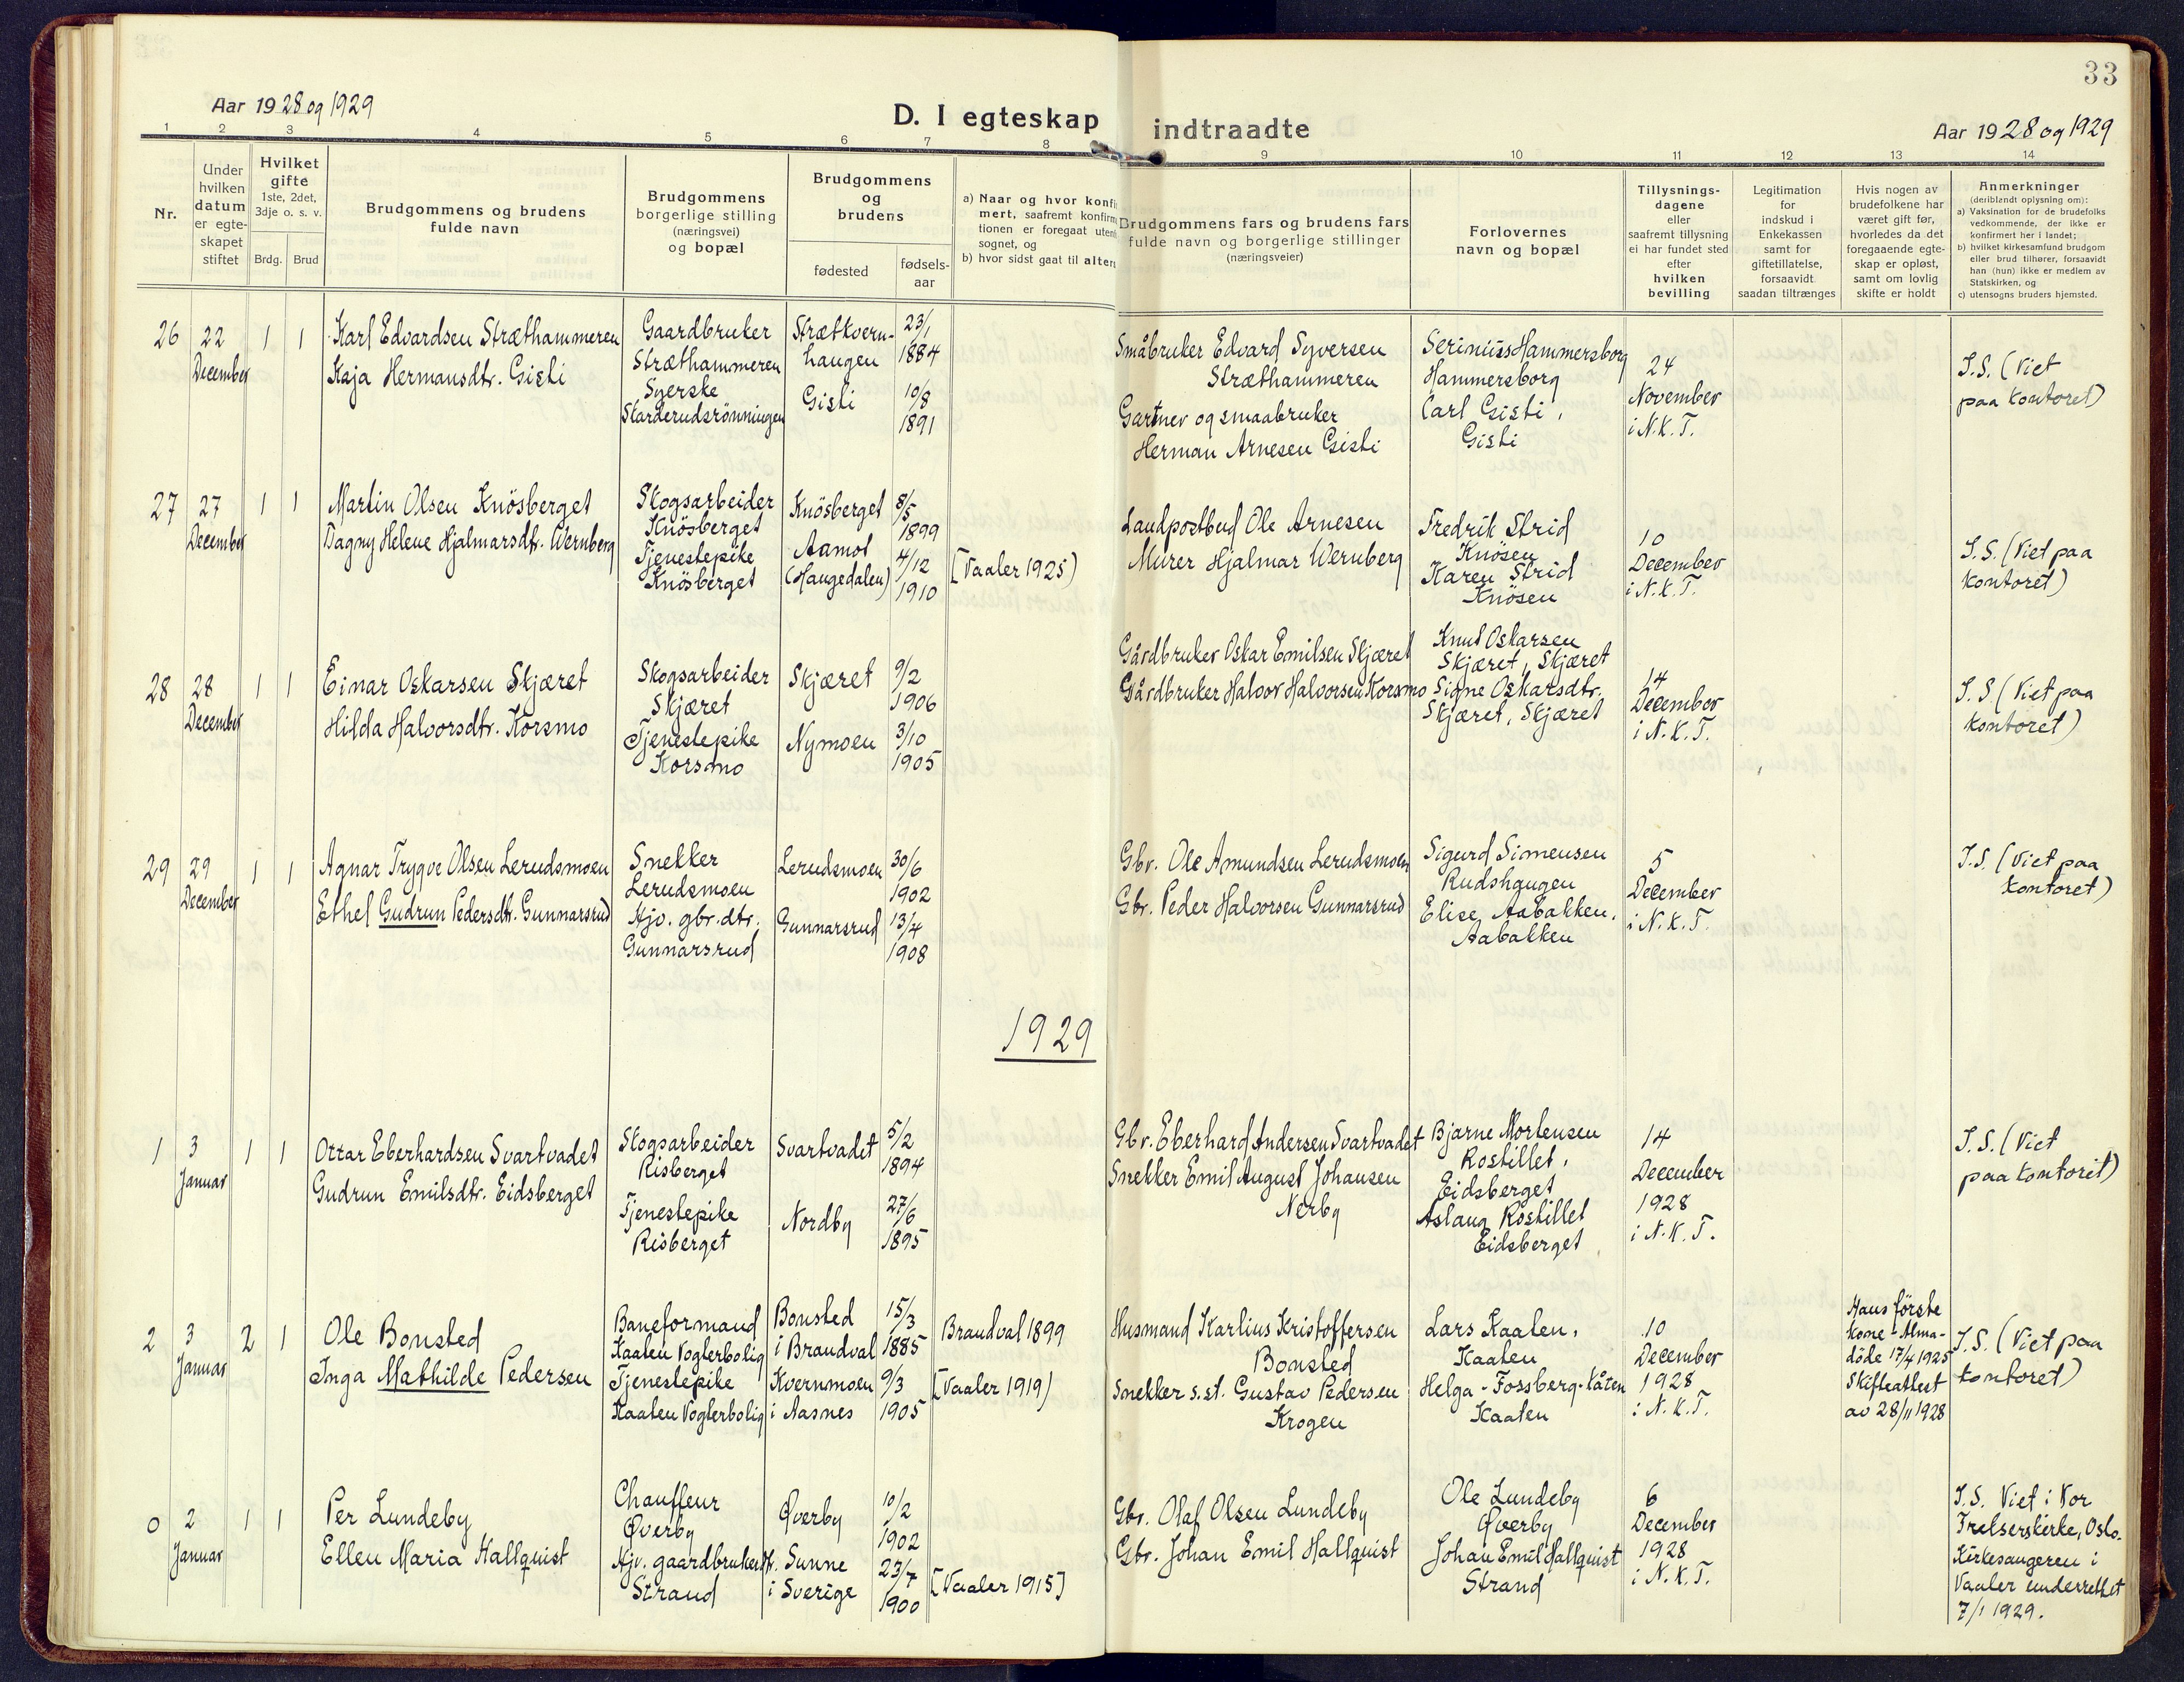 33
Aar 1928 og 1929
D. I egteskap indtraadte
Aar 1928 og 1929
1 2 3 4 5 6 7 8 9 10 11 12 13 14
Nr.
Under
hvilken
datum
er egte-
skapet
stiftet
Hvilket
gifte
1ste, 2det,
3dje o. s. v.
Brdg. Brud
Brudgommens og brudens
fulde navn
Brudgommens
borgerlige stilling
(næringsvei)
og bopæl
Brudgommens
og
brudens
fødested
fødsels-
aar
a) Naar og hvor konfir
mert, saafremt konfirm
tionen er foregaat uten
sognet, og
b) hvor sidst gaat til alters
Brudgommens fars og brudens fars
fulde navn og borgerlige stillinger
(næringsveier)
Forlovernes
navn og bopæl
Tillysnings-
dagene
eller
saafremt tillysning
ei har fundet sted
efter
hvilken
bevilling
Legitimation
for
indskud i
Enkekassen
samt for
giftetillatelse,
forsaavidt
saadan tiltrænges
Hvis nogen av
brudefolkene har
været gift før,
hvorledes da det
foregaaende egte-
skap er opløst,
samt om lovlig
skifte er holdt
Anmerkninger
(deriblandt oplysning om):
a) Vaksination for de brudefolks
vedkommende, der ikke er
konfirmert her i landet;
b) hvilket kirkesamfund brudgom
eller brud tilhører, forsaavidt
han (hun) ikke er medlem av
Statskirken, og
c) utensogns bruders hjemsted.
26
22
December
1 1
Karl Edvardsen Stræthammeren
Kaja Hermansdtr. Gisti
Gaardbruker
Stræthammeren
Syerske
Starderudsrönningen
Strætkvern-
haugen
Gisti
23/1
1884
10/8
1891
Småbruker Edvard Syversen
Stræthammeren
Gartner og smaabruker
Herman Arnesen Gisti
Serinius Hammersborg
Hammersborg
Carl Gisti,
Gisti
24
November
i N.K.T.
I.S. (Viet
paa kontoret)
27
27
December
1 1
Martin Olsen Knösberget
Dagny Helene Hjalmarsdtr. Wernberg
Skogsarbeider
Knösberget
Tjenestepike
Knösberget
Knösberget
Aamot
(Haugedalen)
8/5
1899
4/12
1910
[Vaaler 1925)
Landpostbud Ole Arnesen
Murer Hjalmar Wernberg
Fredrik Strid
Knösen
Karen Strid
Knösen
10
December
i N.K.T.
I.S. (Viet paa
kontoret)
28
28
December
1 1
Einar Oskarsen Skjæret
Hilda Halvorsdtr. Korsmo
Skogsarbeider
Skjæret
Tjenestepike
Korsmo
Skjæret
Nymoen
9/2
1906
3/10
1905
Gårdbruker Oskar Emilsen Skjæret
Gårdbruker Halvor Halvorsen Korsmo
Knut Oskarsen
Skjæret, Skjæret
Signe Oskarsdtr.
Skjæret, Skjæret
14
December
i N.K.T.
I.S (Viet paa
kontoret)
29
29
December
1 1
Agnar Trygve Olsen Lerudsmoen
Ethel Gudrun Pedersdtr. Gunnarsrud
Snekker
Lerudsmoen
Hjv. gbr. dtr.
Gunnarsrud
Lerudsmoen
Gunnarsrud
30/6
1902
13/4
1908
Gbr. Ole Amundsen Lerudsmoen
Gbr. Peder Halvorsen Gunnarsrud
Sigurd Simensen
Rudshaugen
Elise Aabakken,
Aabakken
5
December
i N.K.T.
I.S. (Viet paa
kontoret)
1929
1
3
Januar
1 1
Ottar Eberhardsen Svartvadet
Gudrun Emilsdtr. Eidsberget
Skogsarbeider
Risberget
Tjenestepike
Risberget
Svartvadet
Nordby
5/2
1894
27/6
1895
Gbr. Eberhard Andersen Svartvadet
Snekker Emil August Johansen
Nerby
Bjarne Mortensen
Rostillet,
Eidsberget
Aslaug Rostillet
Eidsberget
14
December
1928
i N.K.T.
I.S. (Viet
paa kontoret)
2
3
Januar
2 1
Ole Bonsted
Inga Mathilde Pedersen
Baneformand
Kaaten Vogterbolig
Tjenestepike
Kaaten Vogterbolig
Bonsted
i Brandval
Kvernmoen
i Aasnes
15/3
1885
9/3
1905
Brandval 1899
[Vaaler 1919)
Husmand Karlius Kristoffersen
Bonsted
Snekker s.st. Gustav Pedersen
Krogen
Lars Kaaten,
Kaaten
Helga Fossberg-Kåten
Kaaten
10
December
1928
i N.K.T.
Hans förste
kone - Alma -
döde 17/4 1925
Skifteattest
av 28/11 1928
I.S. (Viet paa
kontoret)
0
2
Januar
1 1
Per Lundeby
Ellen Maria Hallquist
Chauffeur
Øverby
Hjv. gaardbrukerdtr.
Strand
Øverby
Sunne
i Sverige
10/2
1902
23/7
1900
[Vaaler 1915]
Gbr. Olaf Olsen Lundeby
Gbr. Johan Emil Hallquist
Ole Lundeby
Øverby
Johan Emil Hallquist
Strand
6
December
1928
i N.K.T.
I.S. Viet i Vor
Frelserskirke, Oslo.
Kirkesangeren i
Vaaler underrettet
7/1 1929.